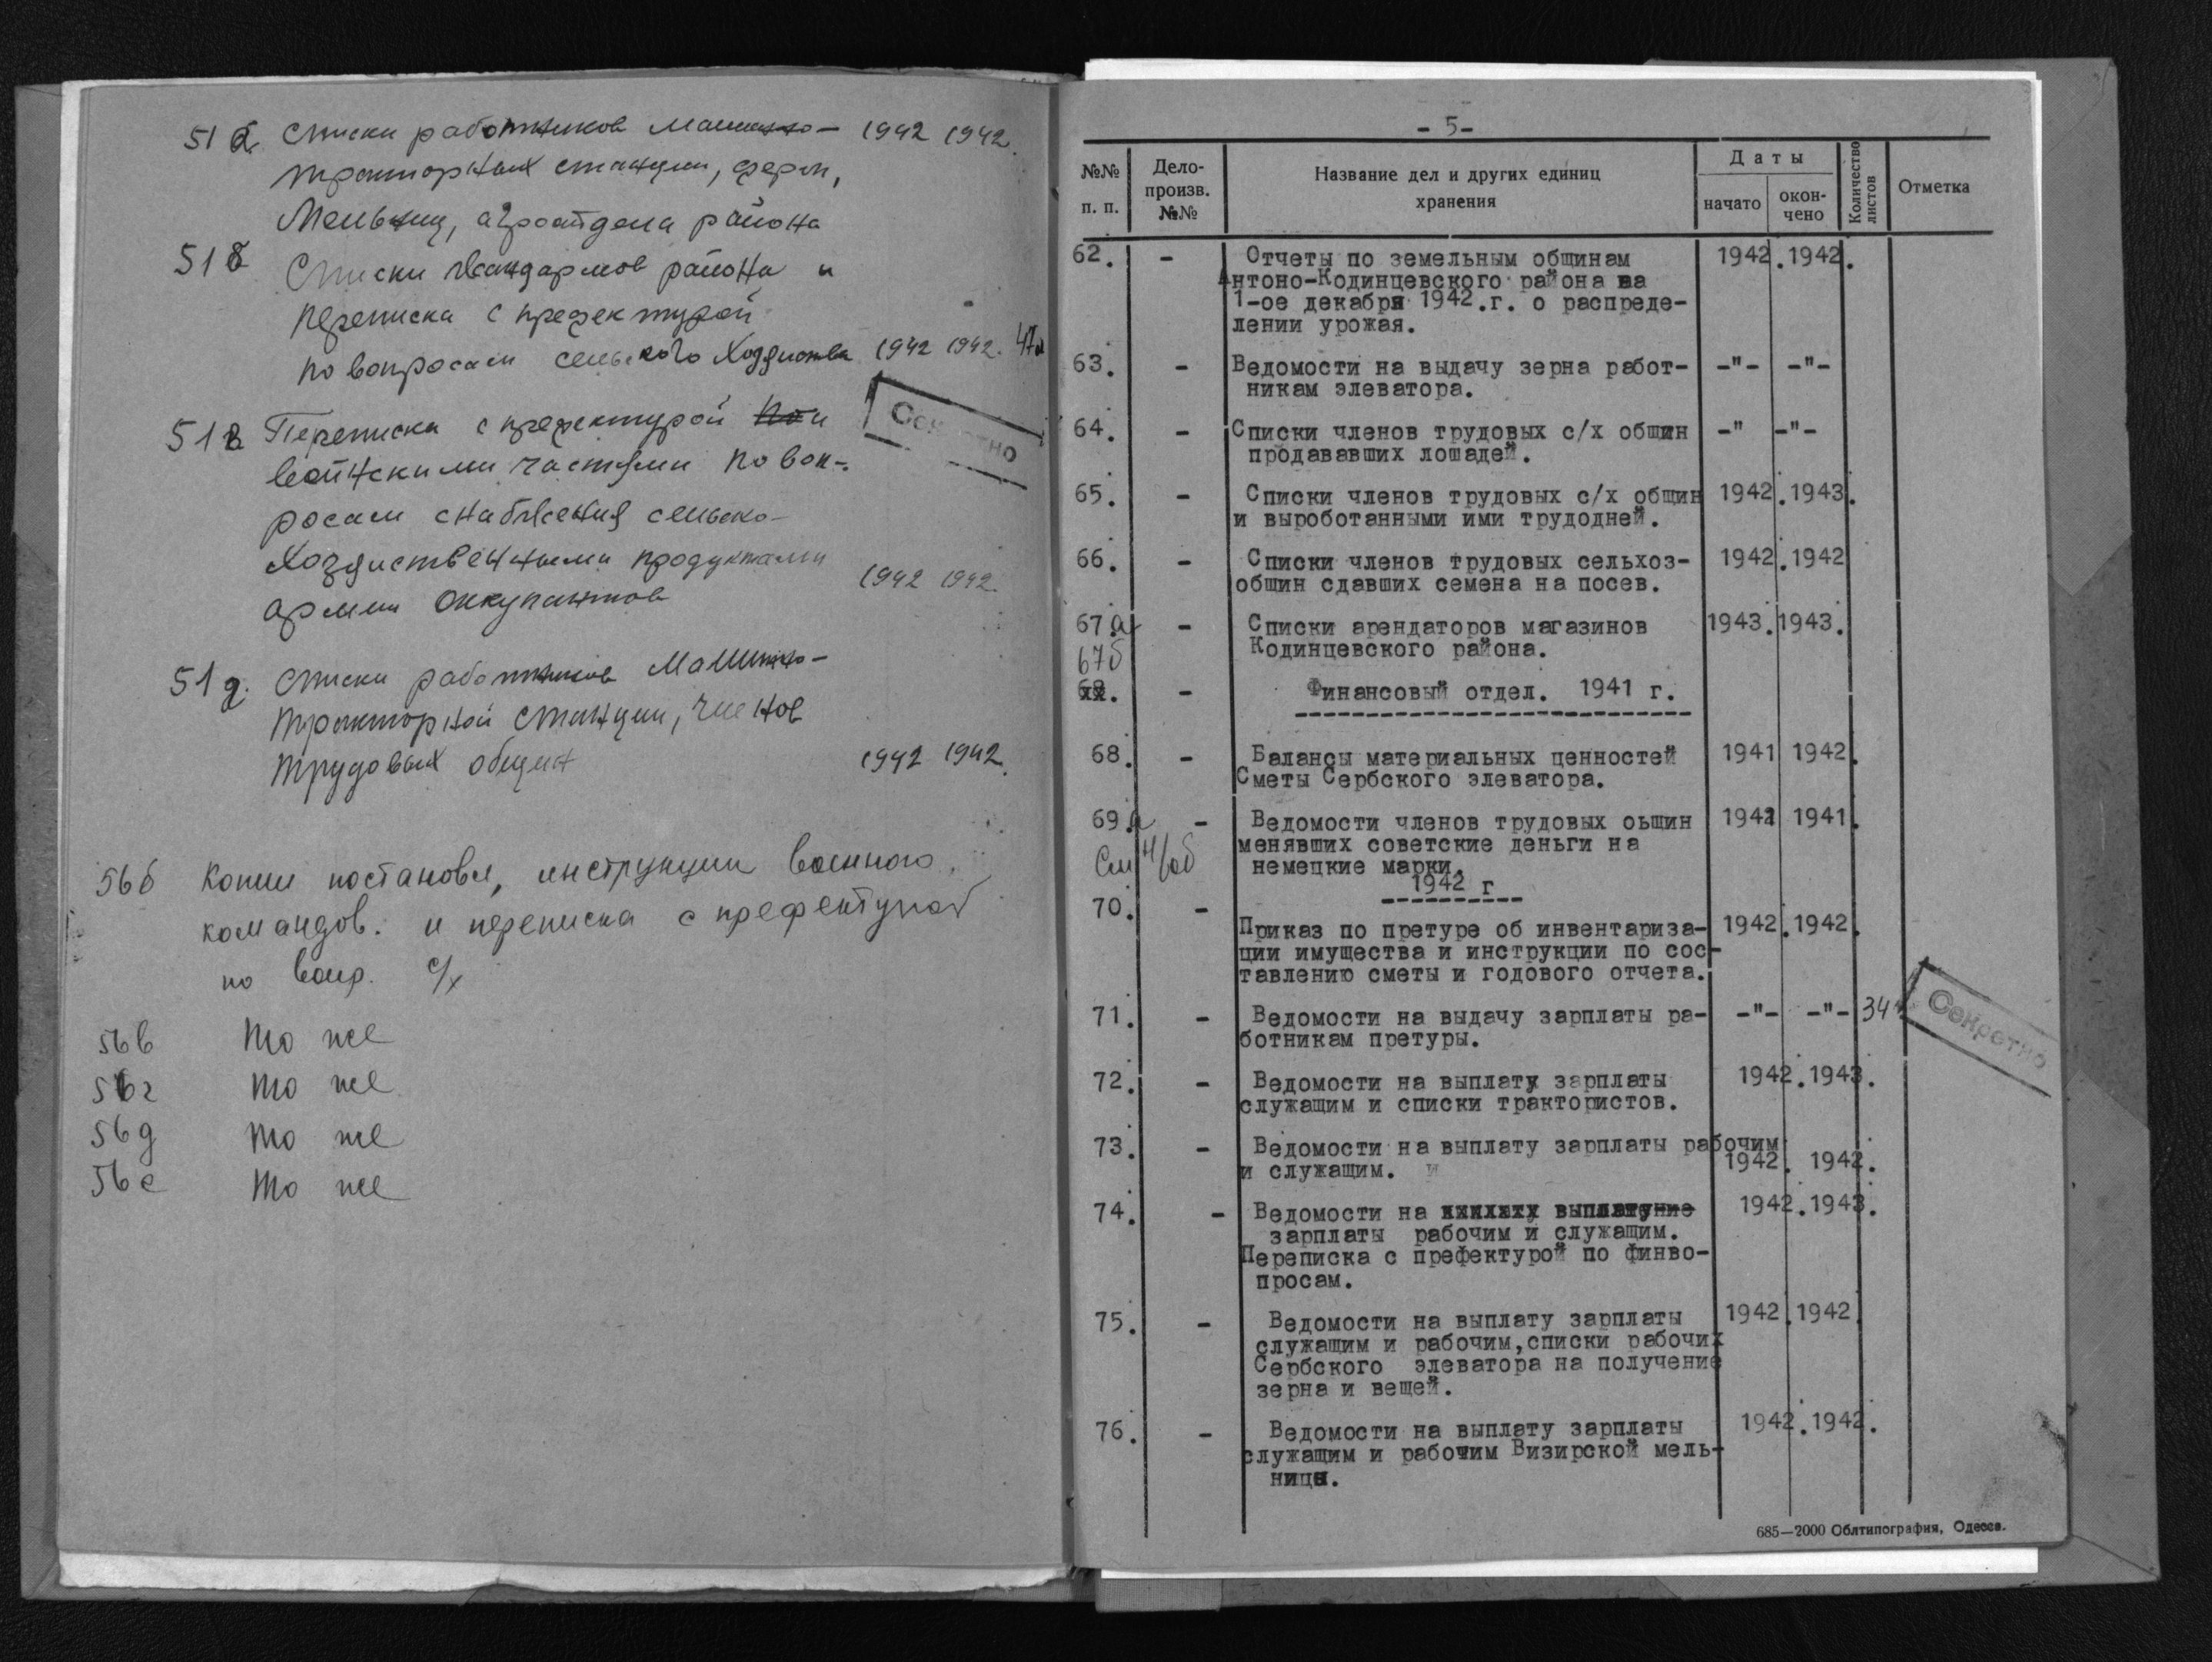 51а. Списки работников Машинно- 1942 1942.
тракторных станции, ферм,
Мельниц, агроотдела района
51б Списки жандармов района и
переписка с префектурой
по вопросам сельского Хозяйства 1942 1942. 47а
51в Переписка с префектурой и
войнскими частями по воп-
росам снабжения сельско-
Хозяиственными продуктами
армии оккупантов 1942 1942.
Секретно
51д. Списки работников Машинно-
тракторной станции, членов
трудовых общин 1942 1942.
56б Копии постановл, инструкции военного
командов. и переписка с префектурой
по вопр. с/х
56в то же
56г то же
56д то же
56е то же
- 5-
№№ п. п.
Дело-произв. №№
Название дел и других единиц хранения
Даты
начато
окон-чено
Количество листов
Отметка
62. - Отчеты по земельным общинам 1942. 1942.
Антоно-Кодинцевского района на
1-ое декабря 1942.г. о распреде-
лении урожая.
63. - Ведомости на выдачу зерна работ- -"- -"-
никам элеватора.
64. - Списки членов трудовых с/х общин -" -"-
продававших лошадей.
65. - Списки членов трудовых с/х общин 1942. 1943.
и выроботанными ими трудодней.
66. - Списки членов трудовых сельхоз- 1942. 1942
общин сдавших семена на посев.
67.а - Списки арендаторов магазинов 1943. 1943.
67б Кодинцевского района.
- Финансовый отдел. 1941 г.
68. - Балансы материальных ценностей 1941 1942.
Сметы Сербского элеватора.
69.а - Ведомости членов трудовых оьщин 1941 1941.
менявших советские деньги на
См н/об немецкие марки.
1942 г
70. -
Приказ по претуре об инвентариза- 1942. 1942.
ции имущества и инструкции по сос-
тавлению сметы и годового отчета.
71. - Ведомости на выдачу зарплаты ра- -"- -"- 34
ботникам претуры.
Секретно
72. - Ведомости на выплату зарплаты 1942. 1943.
служащим и списки трактористов.
73. - Ведомости на выплату зарплаты рабочим
и служащим. и 1942. 1942.
74. - Ведомости на выплату 1942. 1943.
зарплаты рабочим и служащим.
Переписка с префектурой по финво-
просам.
75. - Ведомости на выплату зарплаты 1942. 1942.
служащим и рабочим,списки рабочих
Сербского элеватора на получение
зерна и вещей.
76. - Ведомости на выплату зарплаты 1942. 1942.
служащим и рабочим Визирской мель-
ницы.
685—2000 Облтипография, Одесса.